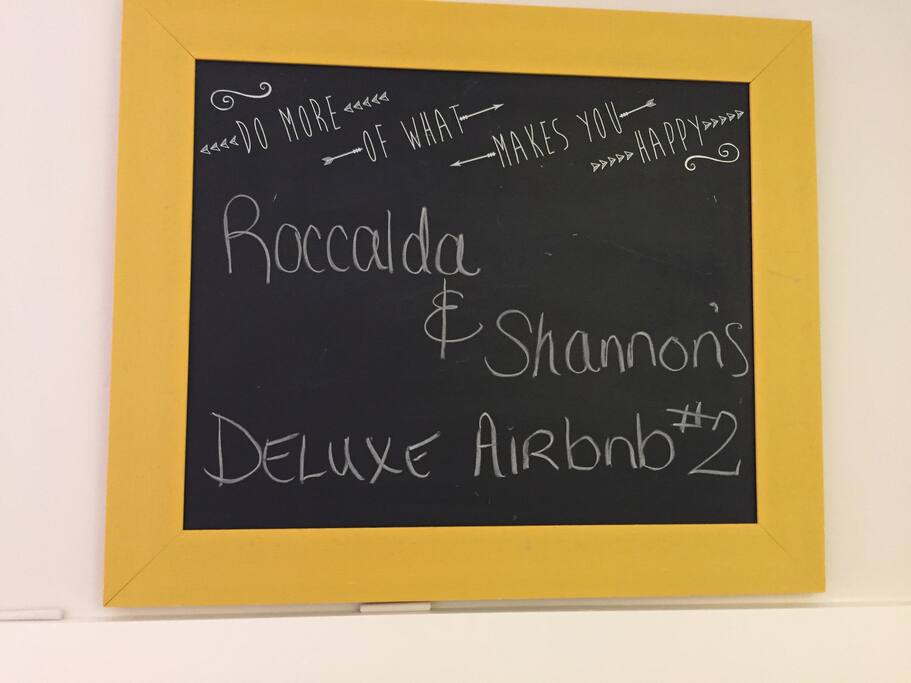 DO MORE OF WHAT MAKES YOU HAPPY
Roccalda
& Shannon's
DELUXE Airbnb #2